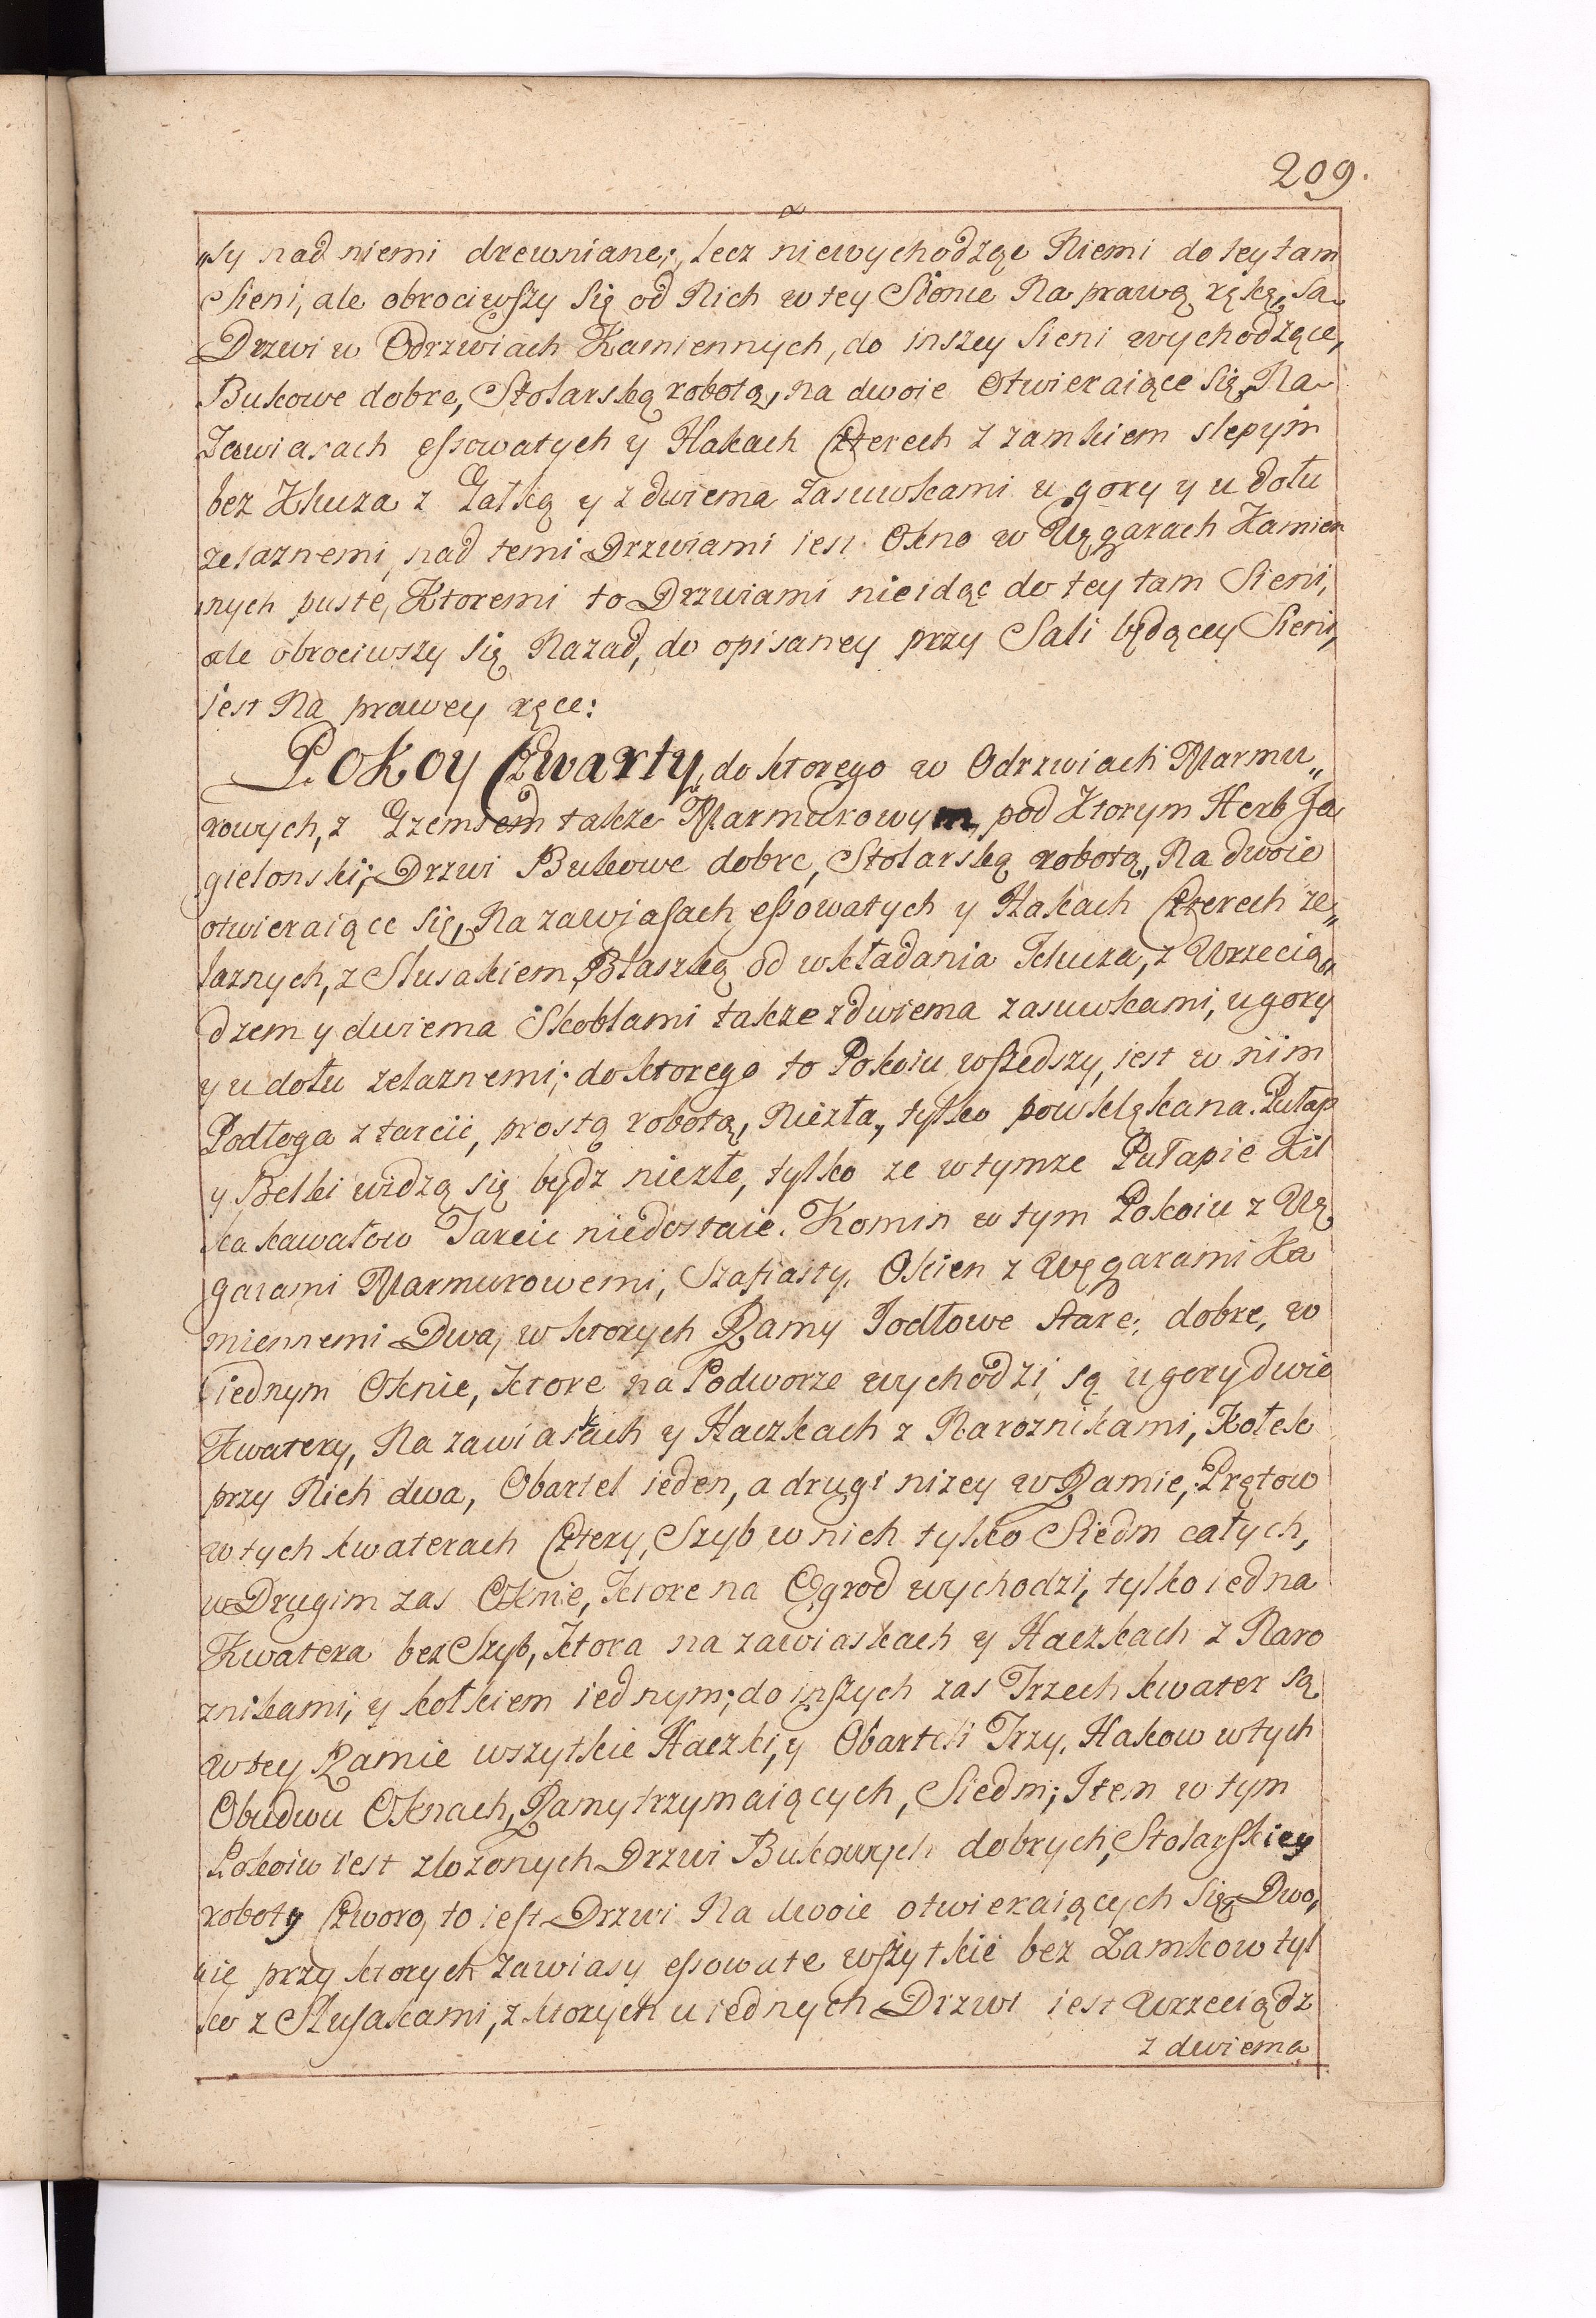 209.
„sy nad niemi drewniane; lecz niewychodząc Niemi do tey tam
Sieni, ale obrociwszy się od Nich w tey Sionie Na prawą rękę, są
Drzwi w Odrzwiach Kamiennych, do inszey Sieni wychodzące,
Bukowe dobre, Stolarską robotą, na dwoie Otwieraiące się, Na
Zawiasach essowatych y Hakach Czterech z zamkiem slepym
bez Klucza z Gałką y z dwiema zasuwkami u gory y u dołu
zelaznemi, nad temi Drzwiami iest Okno w Węgarach Kamien
nych puste, Ktoremi to Drzwiami nieidąc do tey tam Sieni,
ale obrociwszy się Nazad, do opisaney przy Sali będącey Sieni,
iest Na prawey ręce:
Pokoy Czwarty, do ktorego w Odrzwiach Marmu„
rowych, z Gzemsem takze Marmurowym, pod Ktorym Herb Ja
gielonski; Drzwi Bukowe dobre, Stolarską robotą, Na dwoie
otwieraiące się, Na zawiasach essowatych y Hakach Czterech ze„
laznych, z Klusakiem, Blaszką od wkładania Klucza, z Wrzecią„
dzem y dwiema Skoblami takze z dwiema zasuwkami, u gory
y u dołu zelaznemi; do ktorego to Pokoiu wszedszy, iest w nim
Podłoga z tarcic, prostą robotą, Niezła, tylko powklękana. Pułap
y Belki widzą się bydz niezłe, tylko ze w tymze Pułapie Kil
ka kawałow Tarcic niedostaie. Komin w tym Pokoiu z Wę
garami Marmurowemi, Szafiasty. Okien z Węgarami Ka
miennemi Dwa, w ktorych Ramy Jodłowe stare, dobre, w
iednym Oknie, ktore na Podworze wychodzi są u gory dwie
Kwatery, Na zawiaskach y Haczkach z Naroznikami, Kołek
przy Nich dwa, Obartel ieden, a drugi nizey w Ramie, Prętow
w tych kwaterach Cztery, Szyb w nich tylko Siedm całych,
w Drugim zas Oknie, ktore na Ogrod wychodzi, tylko iedna
Kwatera bez Szyb, ktora na zawiaskach y Haczkach z Naro
znikami, y kołkiem iednym; do inszych zas Trzech kwater są
w tey Ramie wszytkie Haczki, y Obartli Trzy. Hakow w tych
Obudwu Oknach, Ramy trzymaiących, Siedm; Item w tym
Pokoiu iest złozonych Drzwi Bukowych dobrych, Stolarskiey
roboty Czworo, to iest Drzwi Na dwoie otwieraiących się, Dwo,
ie przy ktorych zawiasy essowate wszytkie bez Zamkow tyl
ko z Klusakami, z ktorych u iednych Drzwi iest Wrzeciądz
z dwiema